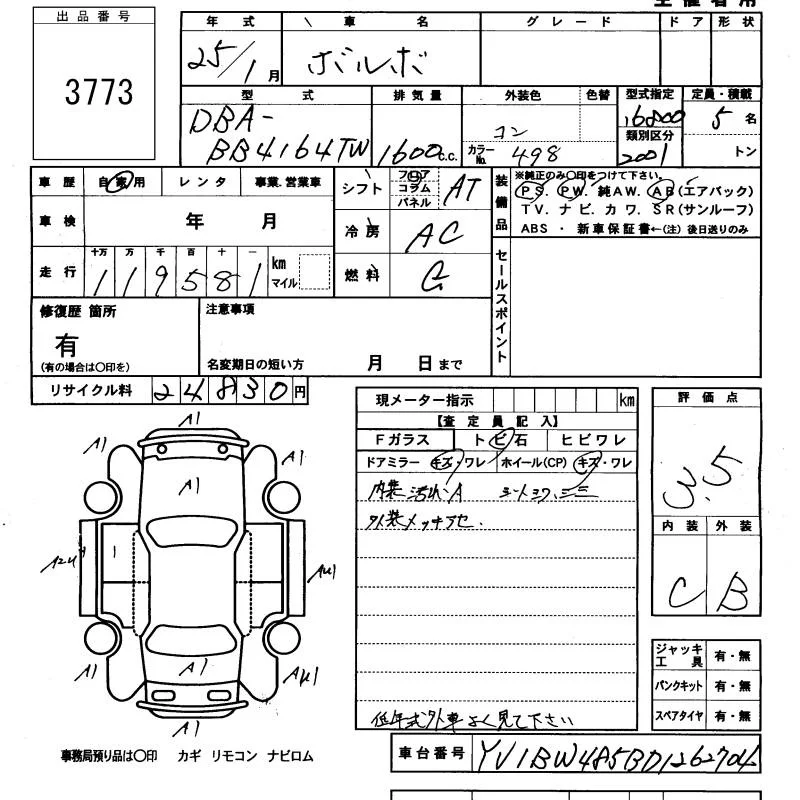 出品番号
3773
年式 車名 グレード ドア 形状
25/1月 ボルボ
型式 排気量 外装色 色替 型式指定 定員・積載
DBA-
BB4164TW 1600c.c. コン 16800 5名
カラーNo. 498 類別区分 2001 トン
車歴 自家用 レンタ 事業.営業車
シフト フロア コラム パネル AT
車検 年 月
冷房 AC
走行 十万 万 千 百 十 一
119581 km マイル
燃料 G
装備品 ※純正のみ〇印をつけて下さい。
PS. PW. 純AW. AB(エアバック)
TV. ナビ. カワ. SR(サンルーフ)
ABS ・ 新車保証書←(注) 後日送りのみ
セールスポイント
修復歴 箇所
有
(有の場合は〇印を)
注意事項
名変期日の短い方 月 日まで
リサイクル料 24830円
A1
A1 A1
A1
A2U 1 AU1
A1 A1 AU1
A1
事務局預り品は〇印 カギ リモコン ナビロム
現メーター指示 km
【査定員記入】
Fガラス トビ石 ヒビワレ
ドアミラー キズ・ワレ ホイール(CP) キズ・ワレ
内装汚れ・A シートシワ、
外装メッキアセ.
低年式外車よく見て下さい
評価点
3.5
内装 外装
C B
ジャッキ工具 有・無
パンクキット 有・無
スペアタイヤ 有・無
車台番号 YV1BW485BD1262704